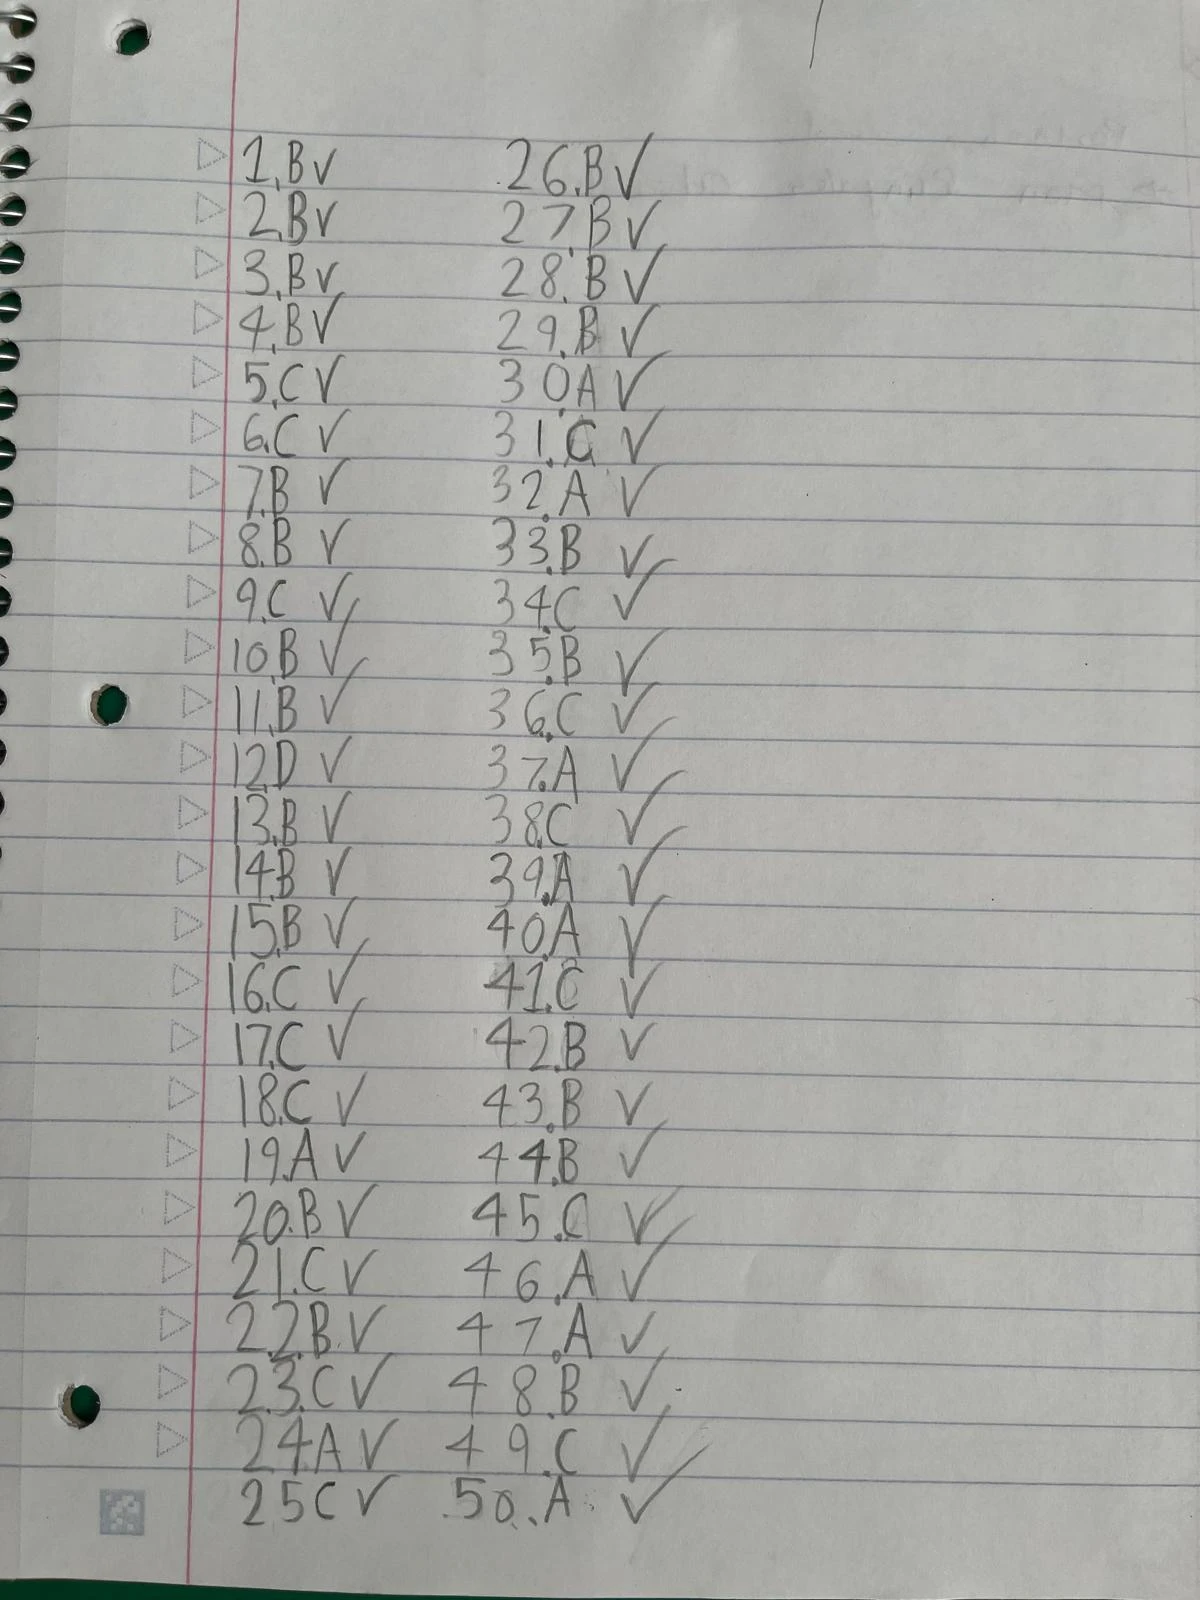 1.B✓ 26.B✓
2.B✓ 27.B✓
3.B✓ 28.B✓
4.B✓ 29.B✓
5.C✓ 30.A✓
6.C✓ 31.C✓
7.B✓ 32.A✓
8.B✓ 33.B✓
9.C✓ 34.C✓
10.B✓ 35.B✓
11.B✓ 36.C✓
12.D✓ 37.A✓
13.B✓ 38.C✓
14.B✓ 39.A✓
15.B✓ 40.A✓
16.C✓ 41.C✓
17.C✓ 42.B✓
18.C✓ 43.B✓
19.A✓ 44.B✓
20.B✓ 45.C✓
21.C✓ 46.A✓
22.B✓ 47.A✓
23.C✓ 48.B✓
24.A✓ 49.C✓
25C✓ 50.A✓